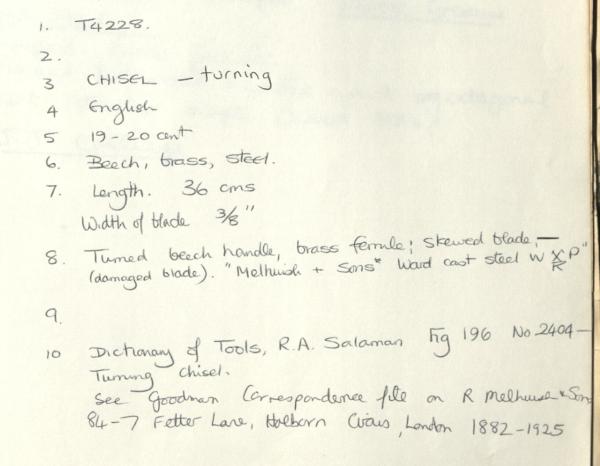 1. T4228.
2.
3 CHISEL – turning
4 English
5 19-20 cent
6. Beech, brass, steel.
7. Length. 36 cms
Width of blade 3/8"
8. Turned beech handle, brass ferrule; skewed blade, –
(damaged blade). "Melhuish + Sons" Ward cast steel W P"
9.
10 Dictionary of Tools, R.A. Salaman Fig 196 No. 2404 –
Turning chisel.
See Goodman Correspondence file on R Melhuish & Sons
84-7 Fetter Lane, Holborn Circus, London 1882-1925